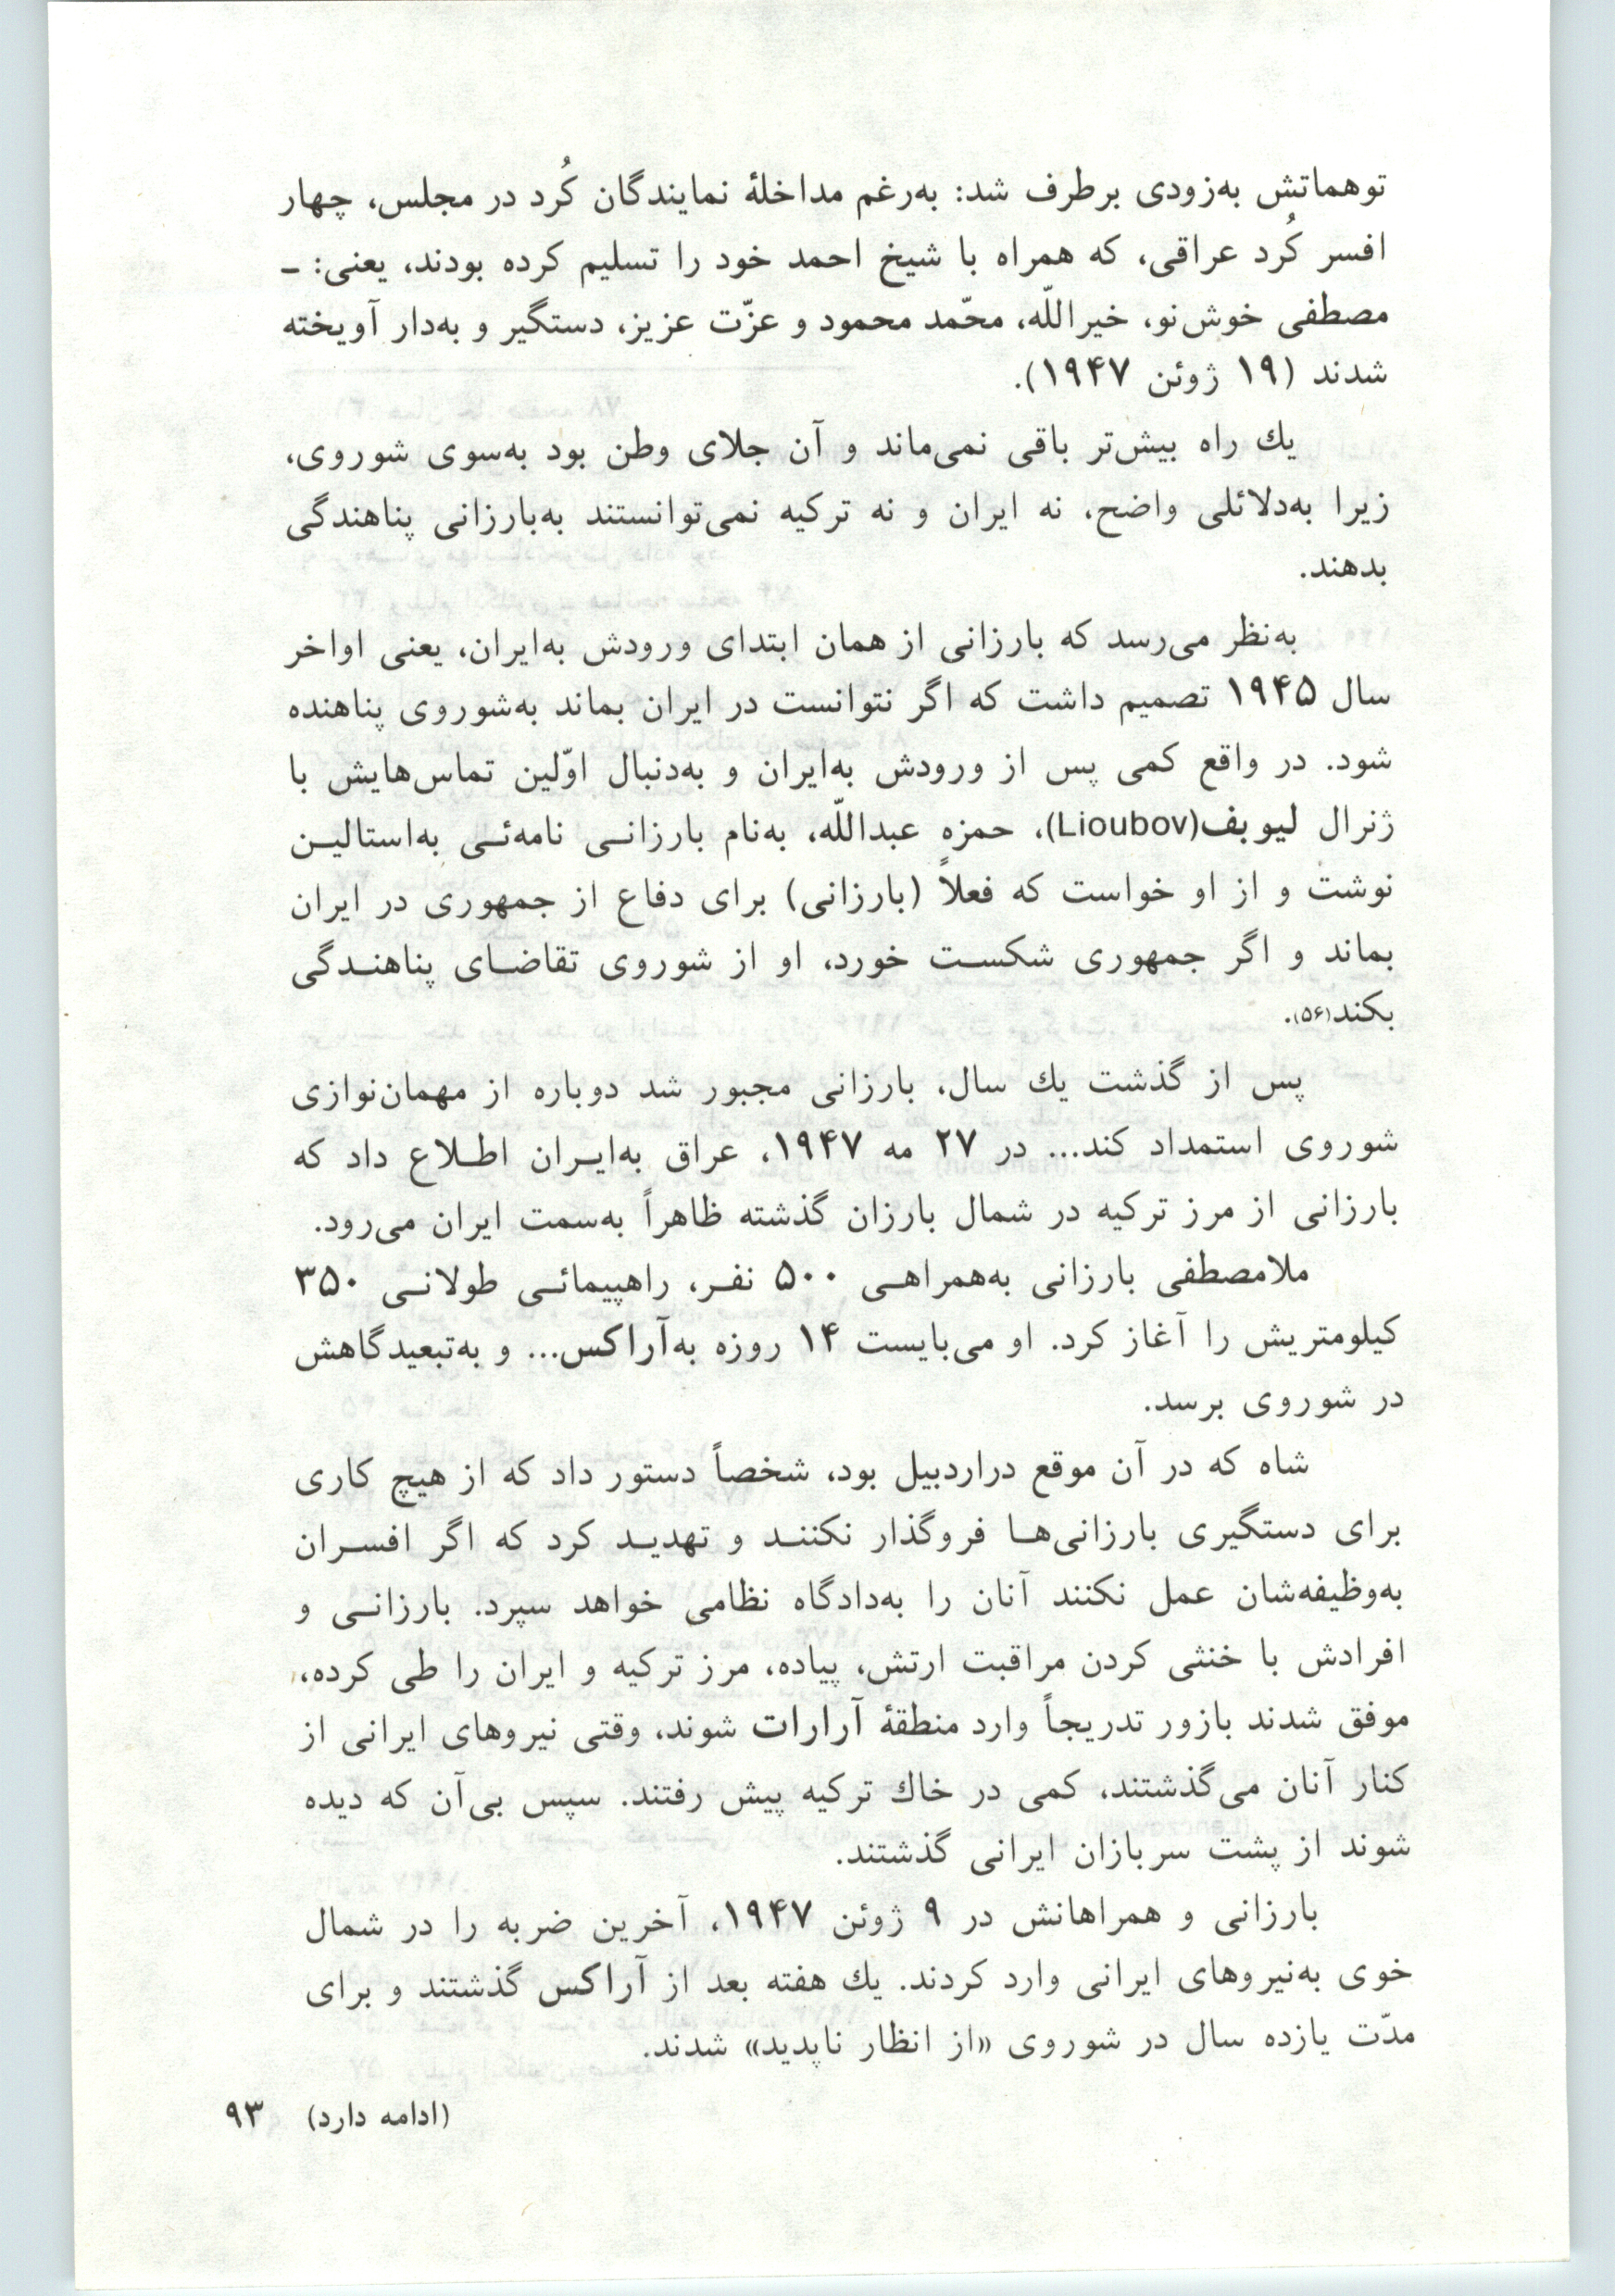 توهماتش به‌زودی برطرف شد: به‌رغم مداخلهٔ نمایندگان کُرد در مجلس، چهار
افسر کُرد عراقی، که همراه با شیخ احمد خود را تسلیم کرده بودند، یعنی: ـ
مصطفی خوش‌نو، خیراللّه، محمّد محمود و عزّت عزیز، دستگیر و به‌دار آویخته
شدند (۱۹ ژوئن ۱۹۴۷).
یك راه بیش‌تر باقی نمی‌ماند و آن جلای وطن بود به‌سوی شوروی،
زیرا به‌دلائلی واضح، نه ایران و نه ترکیه نمی‌توانستند به‌بارزانی پناهندگی
بدهند.
به‌نظر می‌رسد که بارزانی از همان ابتدای ورودش به‌ایران، یعنی اواخر
سال ۱۹۴۵ تصمیم داشت که اگر نتوانست در ایران بماند به‌شوروی پناهنده
شود. در واقع کمی پس از ورودش به‌ایران و به‌دنبال اوّلین تماس‌هایش با
ژنرال لیوبف(Lioubov)، حمزه عبداللّه، به‌نام بارزانـی نامه‌ئـی به‌استالیـن
نوشت و از او خواست که فعلاً (بارزانی) برای دفاع از جمهوری در ایران
بماند و اگر جمهوری شکسـت خورد، او از شوروی تقاضـای پناهنـدگی
بکند(۵۶).
پس از گذشت یك سال، بارزانی مجبور شد دوباره از مهمان‌نوازی
شوروی استمداد کند... در ۲۷ مه ۱۹۴۷، عراق به‌ایـران اطـلاع داد که
بارزانی از مرز ترکیه در شمال بارزان گذشته ظاهراً به‌سمت ایران می‌رود.
ملامصطفی بارزانی به‌همراهـی ۵۰۰ نفـر، راهپیمائـی طولانـی ۳۵۰
کیلومتریش را آغاز کرد. او می‌بایست ۱۴ روزه به‌آراکس... و به‌تبعیدگاهش
در شوروی برسد.
شاه که در آن موقع دراردبیل بود، شخصاً دستور داد که از هیچ کاری
برای دستگیری بارزانی‌هـا فروگذار نکننـد و تهدیـد کرد که اگر افسـران
به‌وظیفه‌شان عمل نکنند آنان را به‌دادگاه نظامی خواهد سپرد. بارزانـی و
افرادش با خنثی کردن مراقبت ارتش، پیاده، مرز ترکیه و ایران را طی کرده،
موفق شدند بازور تدریجاً وارد منطقهٔ آرارات شوند، وقتی نیروهای ایرانی از
کنار آنان می‌گذشتند، کمی در خاك ترکیه پیش رفتند. سپس بی‌آن که دیده
شوند از پشت سربازان ایرانی گذشتند.
بارزانی و همراهانش در ۹ ژوئن ۱۹۴۷، آخرین ضربه را در شمال
خوی به‌نیروهای ایرانی وارد کردند. یك هفته بعد از آراکس گذشتند و برای
مدّت یازده سال در شوروی «از انظار ناپدید» شدند.
(ادامه دارد) ۹۳